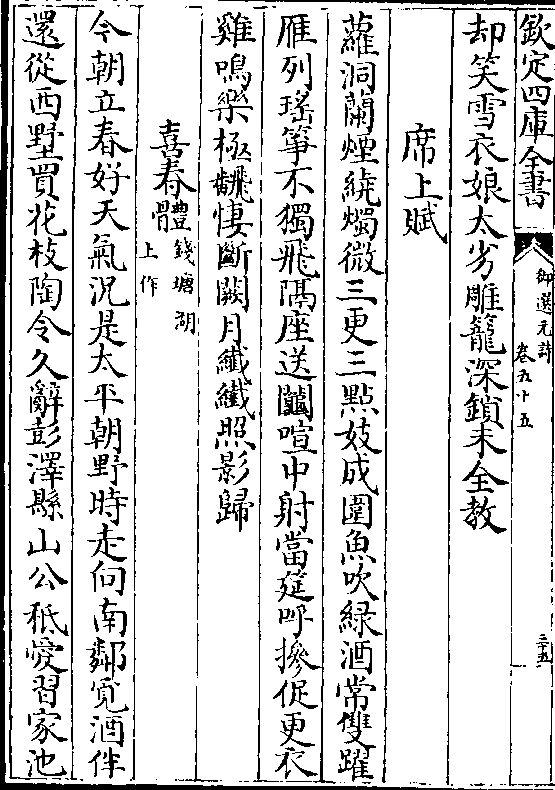 欽定四庫全書
御選元詩
卷五十五
三十五
却笑雪衣娘太劣雕籠深鎖未全教
席上賦
蘿洞蘭煙繞燭微三更三點妓成圍魚吹緑酒常雙躍
雁列瑤箏不獨飛隔座送鬮喧中射當筵呼摻促更衣
雞鳴樂極翻悽斷闕月纖纖照影歸
喜春體錢塘湖上作
今朝立春好天氣況是太平朝野時走向南鄰覓酒伴
還從西墅買花枝陶令久辭彭澤縣山公秪愛習家池